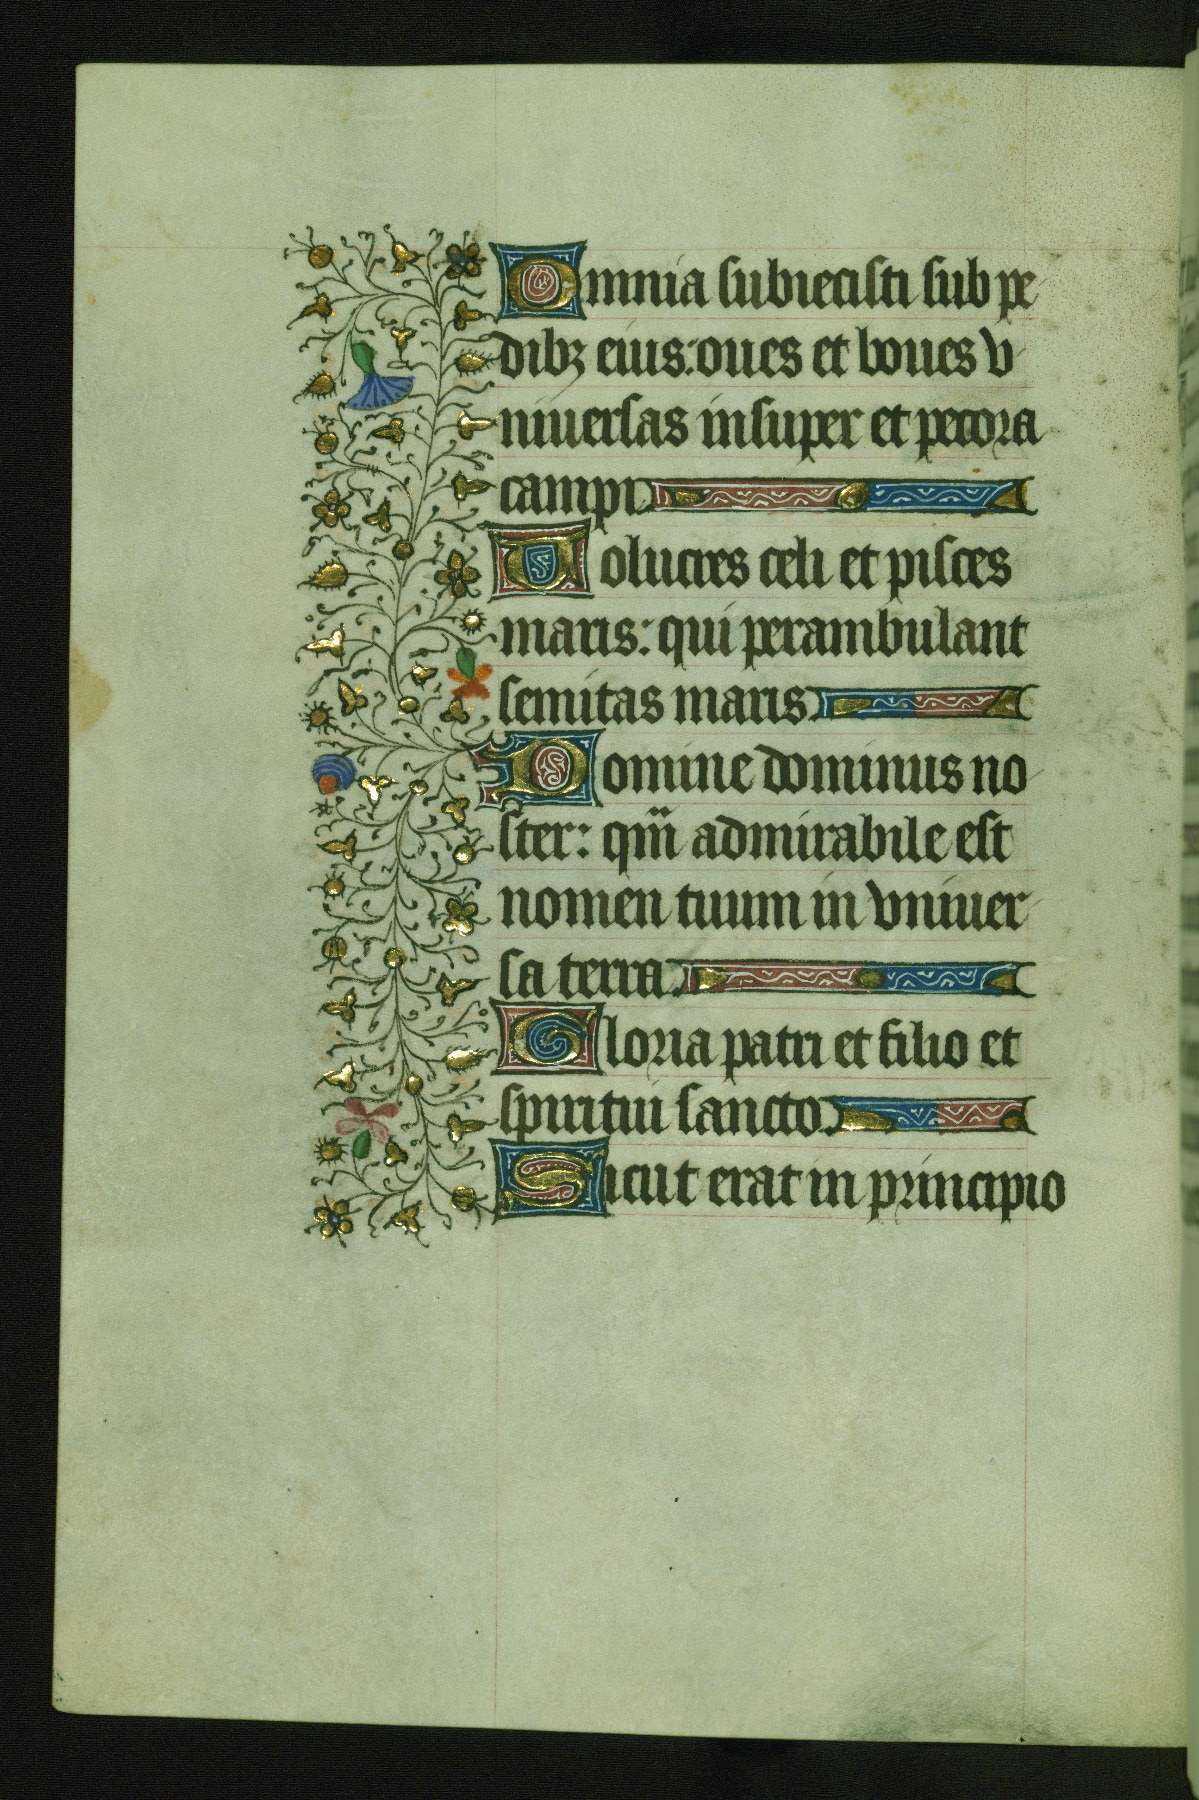 Omnia subiecisti sub pe
dibꝫ eius: oues et boues v
niuersas insuper et pecora
campi
Volucres celi et pisces
maris: qui perambulant
semitas maris.
Domine dominus no
ster: qm̄ admirabile est
nomen tuum in vniuer
sa terra.
Gloria patri et filio et
spiritui sancto.
Sicut erat in principio